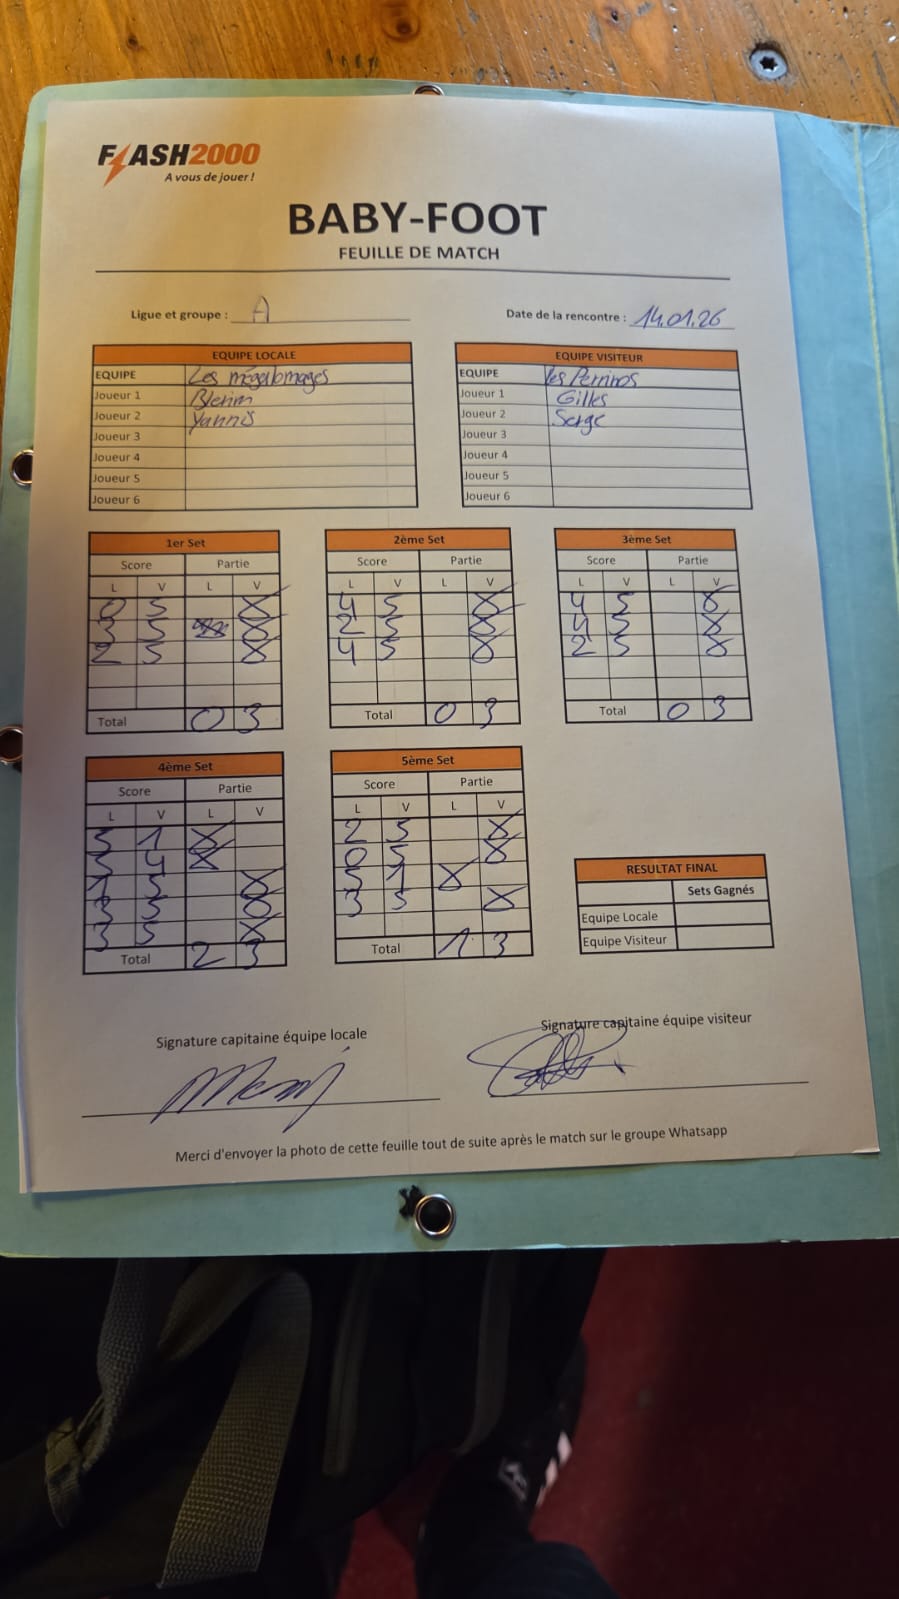 FLASH2000
A vous de jouer !
BABY-FOOT
FEUILLE DE MATCH
Ligue et groupe : A
Date de la rencontre : 14.01.26
EQUIPE LOCALE
EQUIPE Les mégalomages
Joueur 1 Blerim
Joueur 2 Yannis
Joueur 3
Joueur 4
Joueur 5
Joueur 6
EQUIPE VISITEUR
EQUIPE les Perrinos
Joueur 1 Gilles
Joueur 2 Serge
Joueur 3
Joueur 4
Joueur 5
Joueur 6
1er Set
Score Partie
L V L V
0 5 X
3 5 X
2 5 X
Total 0 3
2ème Set
Score Partie
L V L V
4 5 X
2 5 X
4 5 X
Total 0 3
3ème Set
Score Partie
L V L V
4 5 X
4 5 X
2 5 X
Total 0 3
4ème Set
Score Partie
L V L V
5 1 X
5 4 X
1 5 X
3 5 X
3 5 X
Total 2 3
5ème Set
Score Partie
L V L V
2 5 X
0 5 X
5 1 X
3 5 X
Total 1 3
RESULTAT FINAL
Sets Gagnés
Equipe Locale
Equipe Visiteur
Signature capitaine équipe locale
Signature capitaine équipe visiteur
Merci d'envoyer la photo de cette feuille tout de suite après le match sur le groupe Whatsapp